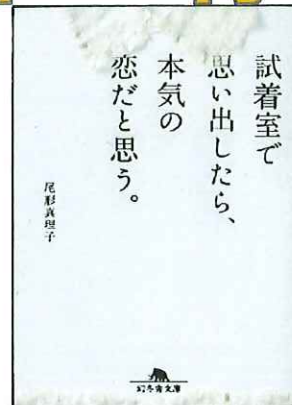 試着室で
思い出したら、
本気の
恋だと思う。
尾形真理子
幻冬舎文庫